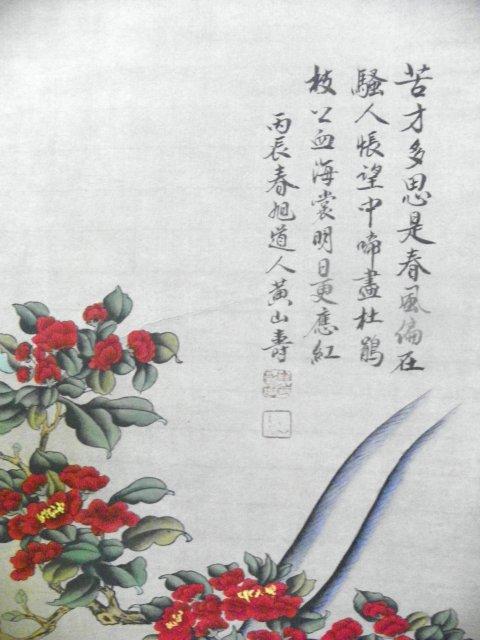 苦才多思是春風偏在
騷人悵望中啼盡杜鵑
枝上血海裳明日更應紅
丙辰春旭道人黃山壽